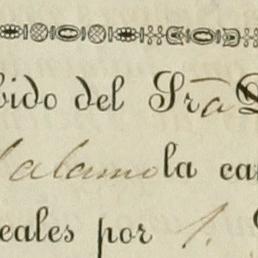 bido del Sra D
alamo la ca
eales por 1.